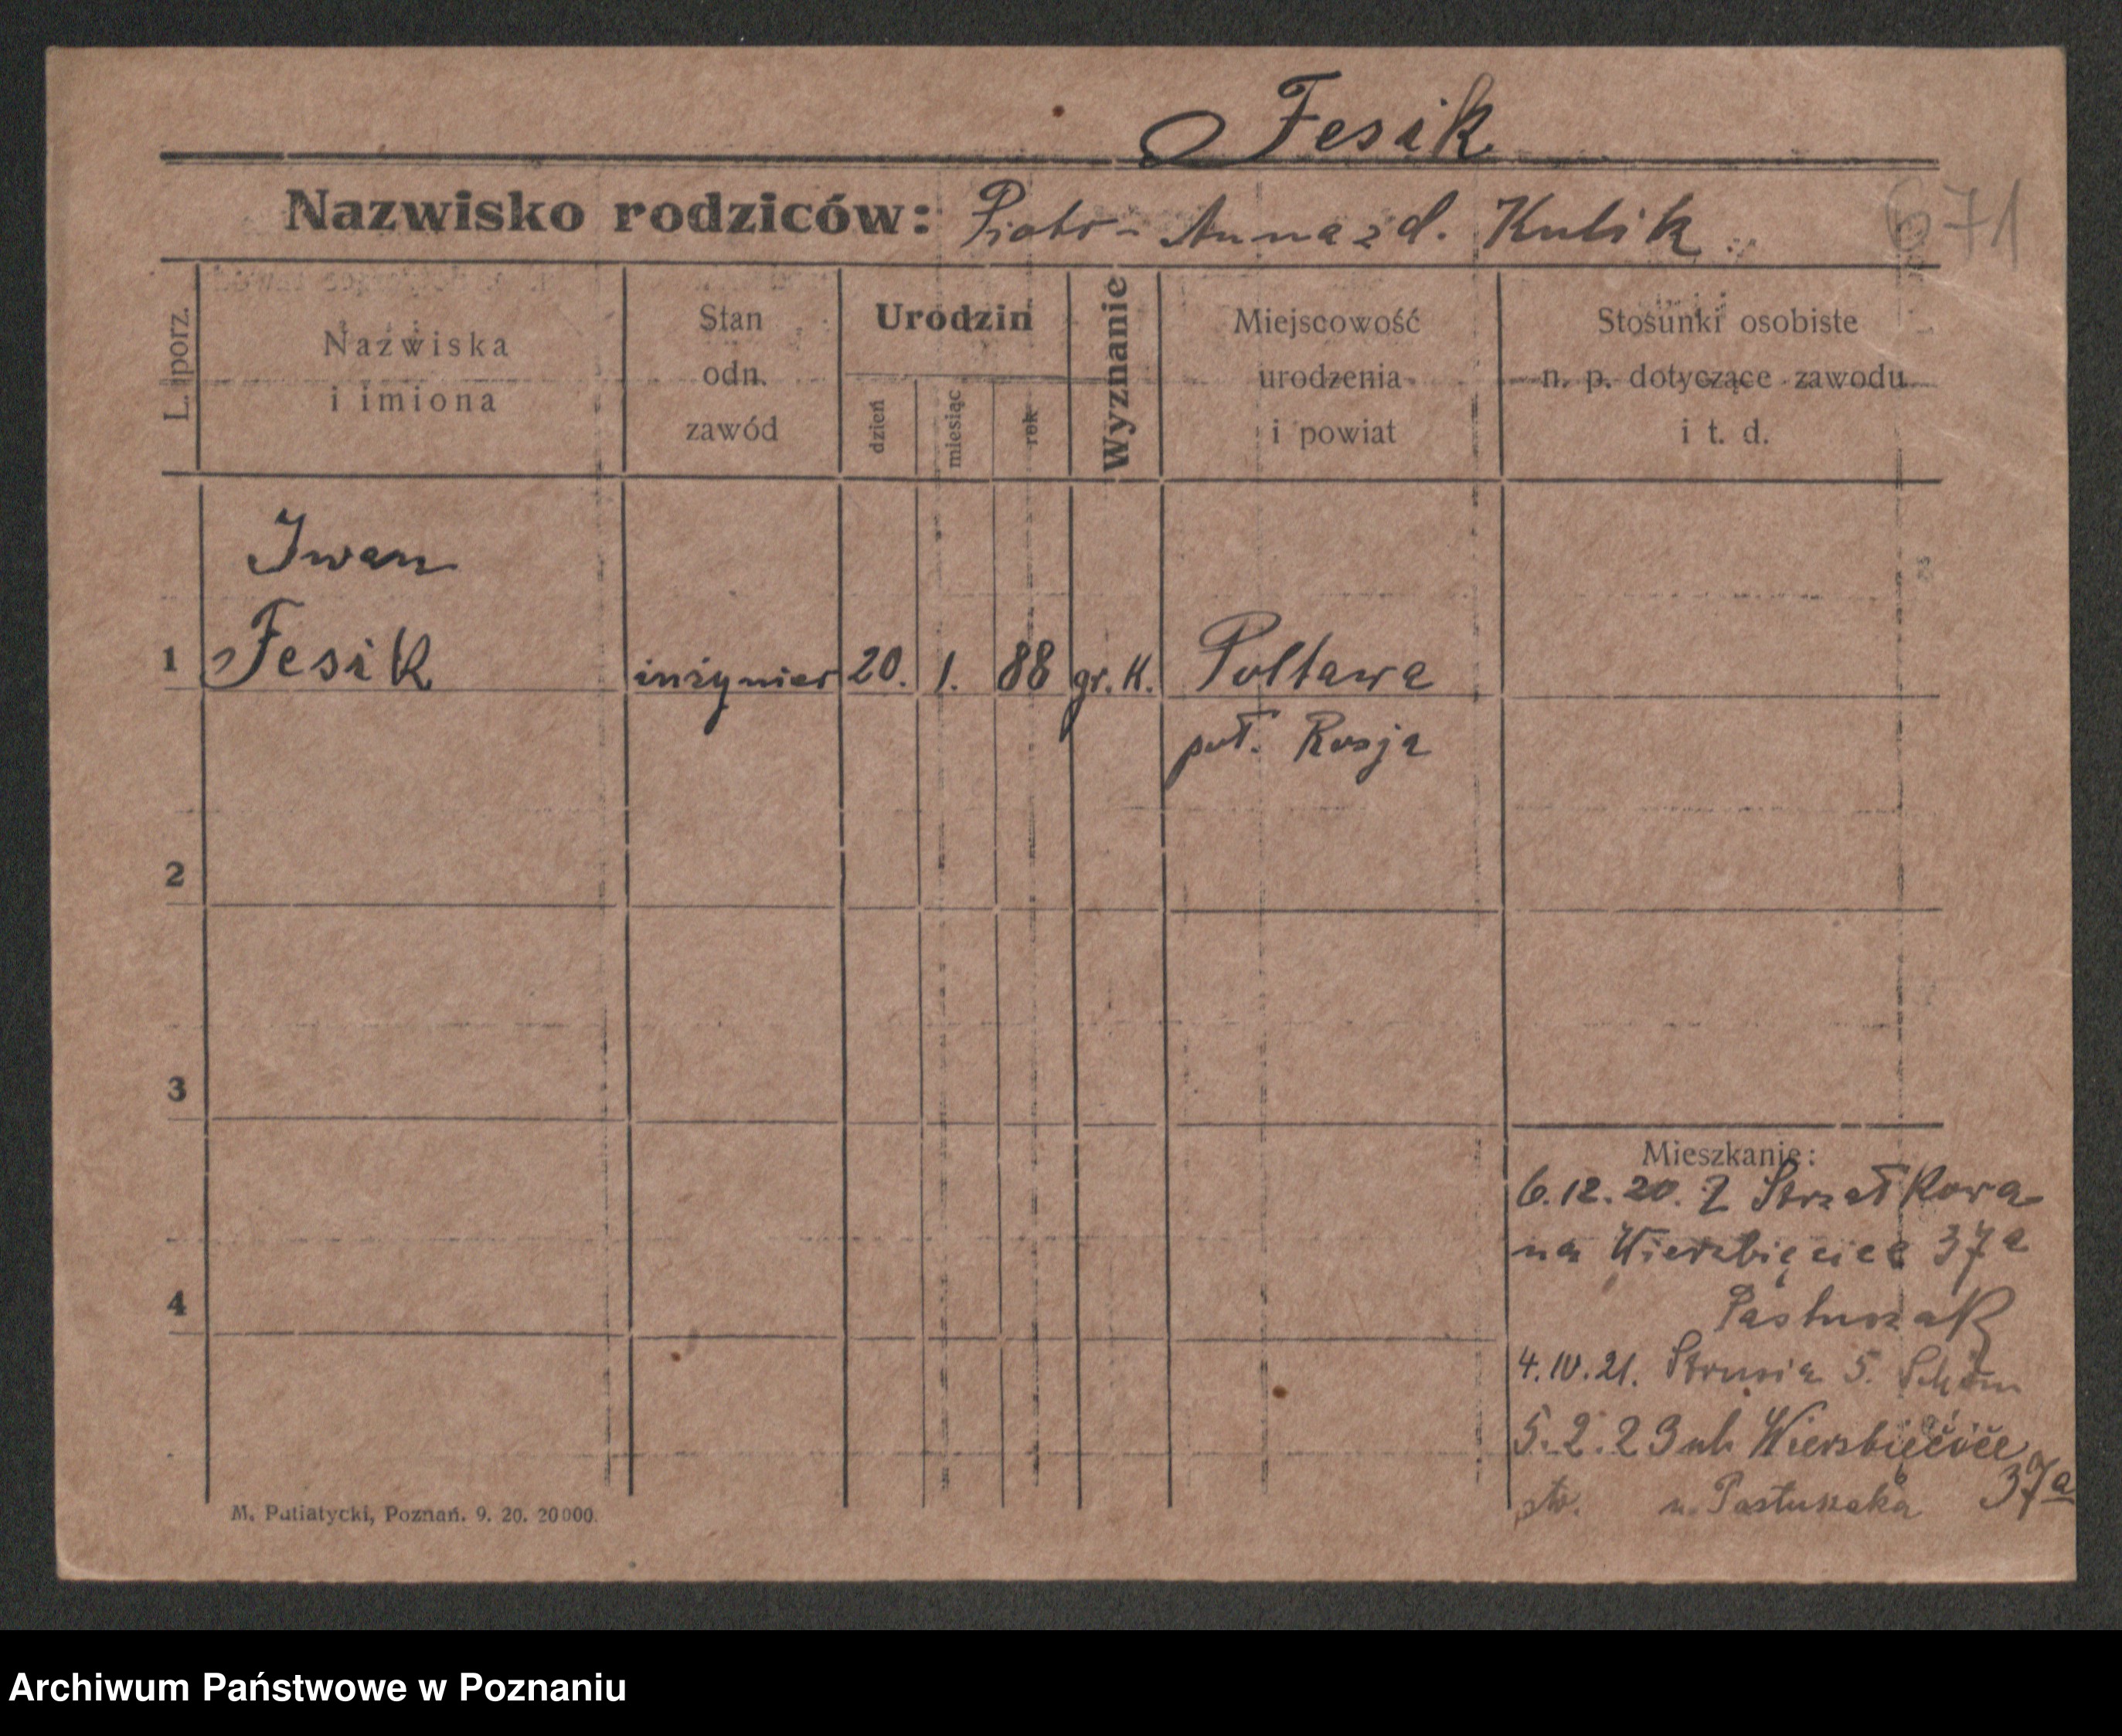 Fesik
Nazwisko rodziców: Piotr - Anna z d. Kulik
671
L. porz.
Nazwiska
i imiona
Stan
odn.
zawód
Urodzin
dzień
miesiąc
rok
Wyznanie
Miejscowość
urodzenia
i powiat
Stosunki osobiste
n. p. dotyczące zawodu
i t. d.
Iwan
1 Fesik inżynier 20. 1. 88 gr. K. Poltawa
Rosja
2
3
4
Mieszkanie:
6.12.20. Z Strzałkowa
na Wierzbięcice 37a
Pastuszak
4.IV.21. Strusia 5. Schön
5.2.23 ul. Wierzbięcice
37a
u. Pastuszaka
M. Putiatycki, Poznań. 9. 20. 20000.
Archiwum Państwowe w Poznaniu